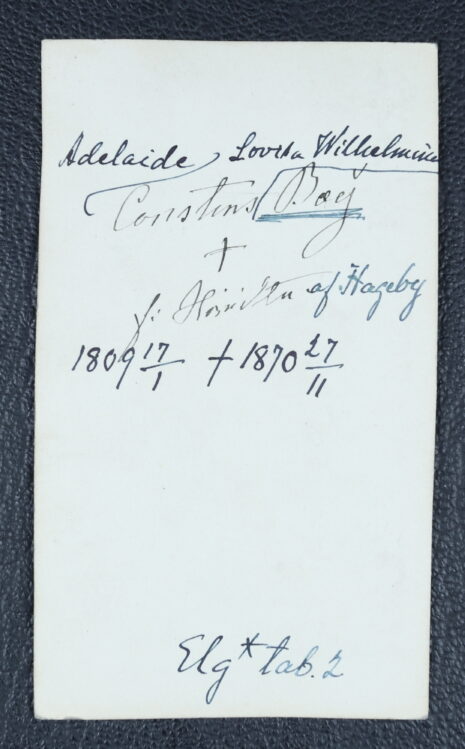 Adelaide Lovisa Wilhelmine
Constans Boy
+
f: Hamilton af Hageby
1809 17/1 + 1870 27/11
Elg* tab. 2